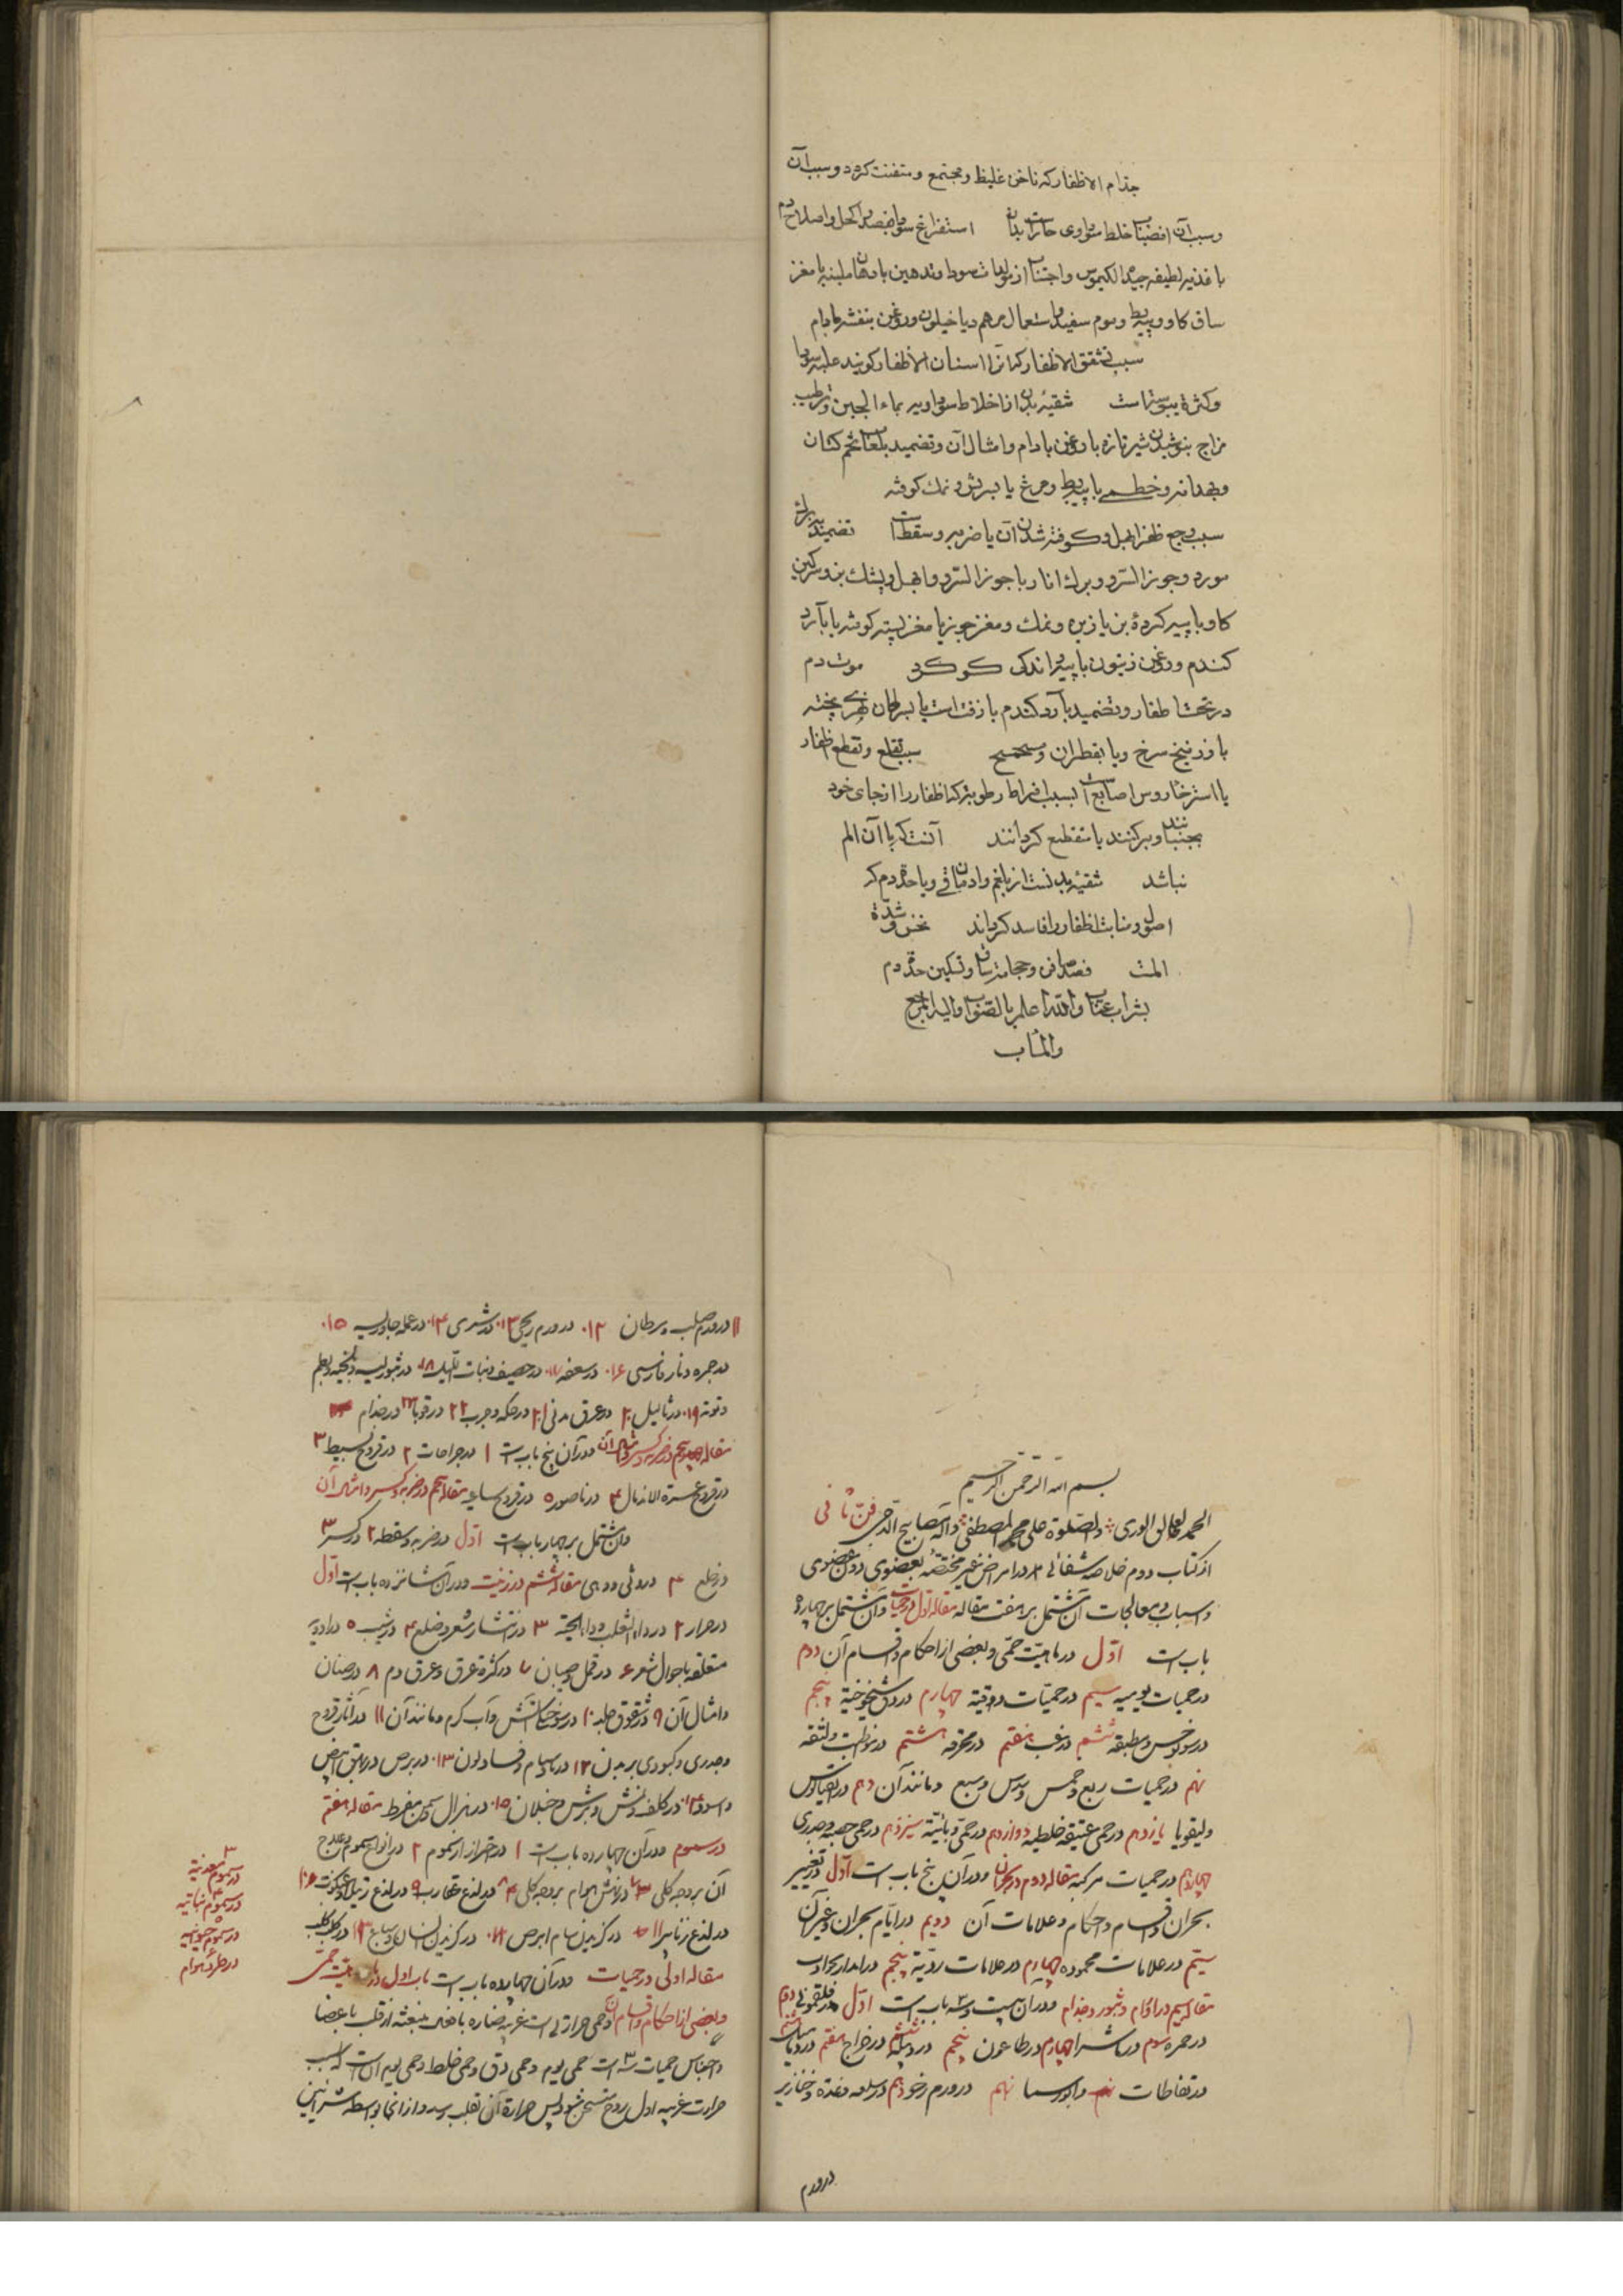 جذام الاظفار که ناخن غلیظ و مجتمع و متفتت کردد و سبب آن
و سبب آن انصباب خلط سوداوی استفراغ سودا بفصد اکحل و اصلاح دم
با غذیه لطیفه جید الکیموس و اجتناب از مولدات سودا و تدهین بادهان ملینه یا مغز
ساق کاو و پیه بط و موم سفید و استعمال مرهم دیاخیلون و روغن بنفشه بادام
سبب تشقق الاظفار که آنرا اسنان الاظفار کویند غلبه سودا
و کثرة یبوستست تنقیه بدن از اخلاط سوداویه بماء الجبن و ترطیب
مزاج بنوشیدن شیر تازه با روغن بادام و امثال آن و تضمید بلعاب تخم کتان
و بهدانه و خطمی با پیه بط و مرغ یا بسریش و نمک کوفته
سبب وجع ظفر کوفته شدن آن یا ضربه و سقطه است تضمید ببرک
مورد و جوز السرو و برک انار یا جوز السرو و ابهل و پشک بز و سرکین
کاو با پیه کردهٔ بز یا زیره و نمک و مغز جوز یا مغز پسته کوفته یا با آرد
کندم و روغن زیتون با پیه و اندکی کوکرد موت دم
در تحت اظفار و تضمید بآرد کندم با زفت است یا بسرطان نهری پخته
با زرنیخ سرخ و یا بقطران سبب تقلع و تقطع اظفار
یا استرخاء روس اصابع است بسبب افراط رطوبت که اظفار را از جای خود
بجنبانند و برکنند یا منقطع کردانند آنست که با آن الم
نباشد تنقیه بدنست از بلغم و ادمان قی و یا حدة دم که
اصول و منابت اظفار را فاسد کرداند نخس و شدة
المست فصد صافن و حجامت ساق و تسکین حدة دم
بشراب عناب والله اعلم بالصواب والیه المرجع
والمآب
بسم الله الرحمن الرحیم
الحمد لخالق الوری والصلوة علی محمد المصطفی وآله مصابیح الدجی فن ثانی
از کتاب دوم خلاصه شفائی در امراض غیر مختصه بعضوی دون عضوی
و اسباب و معالجات آن مشتمل بر هفت مقاله مقاله اول در حمیات و آن مشتمل بر چهارده
باب است اول در ماهیت حمی و بعضی از احکام و اقسام آن دوم
در حمیات یومیه سیم در حمیات دقیه چهارم در دق شیخوخیة پنجم
در سونوخس و مطبقه ششم در غب هفتم در محرقه هشتم در مواظبه و لثقه
نهم در حمیات ربع و خمس و سدس و سبع و مانند آن دهم در انقیالوس
و لیفوریا یازدهم در حمی عتیقه خلطیه دوازدهم در حمی وبائیه سیزدهم در حمی حصبه و جدری
چهاردهم در حمیات مرکبه مقاله دوم در بحران و در آن پنج باب است اول در تفسیر
بحران و اقسام و احکام و علامات آن دویم در ایام بحران و غیر آن
سیّم در علامات محموده چهارم در علامات ردیّه پنجم
مقاله سیم در اورام و بثور و جذام و در آن بیست و سه باب است اول در فلغمونی دوم
در حمره سوم در ماشرا چهارم در طاعون پنجم در دبیله ششم در خراج هفتم در دمامیل هشتم
در نفاطات نهم در ورم رخو دهم در سلعه و غدد و خنازیر
در ورم
۱۱ در ورم صلب و سرطان ۱۲ در ورم ریحی ۱۳ در شری ۱۴ در نمله جاورسیه ۱۵
در جمره و نار فارسی ۱۶ در سعفه ۱۷ در حصف و نبات اللیل ۱۸ در بثور لبنیه و بلخیه و بطم
و توته ۱۹ در ثالیل ۲۰ در عرق مدنی ۲۱ در حکه و جرب ۲۲ در قوبا ۲۳ در جذام
و در آن پنج باب است ۱ در جراحات ۲ در قروح بسیط ۳
در قروح عسرة الاندمال ۴ در ناصور ۵ در قروح ساعیه مقاله پنجم در ضربه و کسر و امثال آن
و آن مشتمل بر چهار باب است اول در ضربه و سقطه ۲ در کسر ۳
در خلع ۴ در وثی و وهی مقاله ششم در زینت و در آن شانزده باب است اول
در حزاز ۲ در داء الثعلب و داء الحیة ۳ در انتشار شعر و صلع ۴ در شیب ۵ در ادویه
متعلقه باحوال شعر ۶ در قمل و صیبان ۷ در کثرة عرق و عرق دم ۸ در صنان
و امثال آن ۹ در شقوق جلد ۱۰ در سوختکی آتش و آب کرم و مانند آن ۱۱ در آثار قروح
و جدری و کبودی بر بدن ۱۲ در فساد لون ۱۳ در برص و در بهق ابیض
و اسود ۱۴ در کلف و نمش و برش و خیلان ۱۵ در هزال و سمن مفرط مقاله هفتم
در سموم و در آن چهارده باب است ۱ در احتراز از سموم ۲ در انواع سموم و علاج
آن بر وجه کلی در نهش هوام بر وجه کلی ۸ در لذع عقارب ۹ در لذع رتیلا و عنکبوت ۱۰
در لذع زنابیر ۱۱ در کزیدن سام ابرص ۱۲ در کزیدن انسان و سباع ۱۳ در کلب کلب
مقاله اولی در حمیات و در آن چهارده باب است باب اول در ماهیت حمی
و بعضی از احکام و اقسام آن و حمی حرارتی است غریبه ضاره بافعال منبعثه از قلب باعضا
و اجناس حمیات ۳ است حمی یوم و حمی دق و حمی خلط و حمی یوم آن است که سبب
حرارت غریبه اول روح متسخن شود پس حرارة آن بقلب رسد و از آنجا بواسطه شرایین
۳
در سموم معدنیة
در سموم نباتیه
در سموم حیوانیه
در طرد هوام